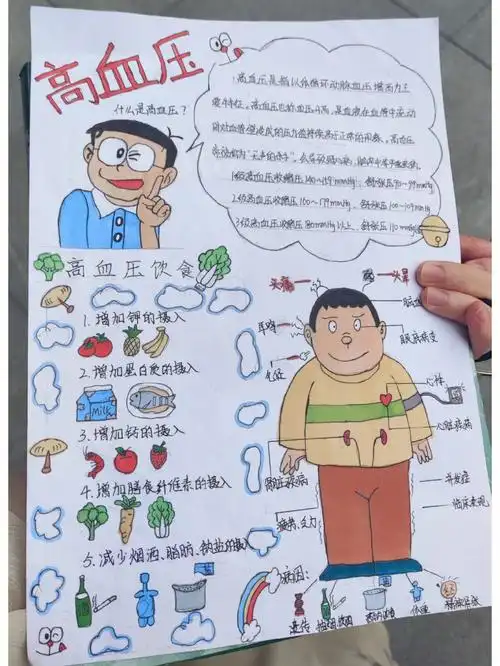 高血压
什么是高血压？
1.高血压是指以体循环动脉血压增高为主
要特征。高血压也称血压升高，是血液在血管中流动
时对血管壁造成的压力值持续高于正常的现象。高血压
被称为“无声的杀手”，会导致
1级高血压收缩压140~159mmHg、舒张压90~99mmHg
2级高血压收缩压160~179mmHg、舒张压100~109mmHg
3级高血压收缩压180mmHg以上、舒张压110mmHg
高血压饮食
1. 增加钾的摄入
2. 增加蛋白质的摄入
Milk
3. 增加钙的摄入
4. 增加膳食纤维素的摄入
5. 减少烟酒、脂肪、钠盐的摄入
头痛
头晕
耳鸣
眼底病变
心悸
心体
心脏疾病
肾脏疾病
并发症
临床表现
疲劳、乏力
病因：
遗传
抽烟饮酒
体重
精神紧张